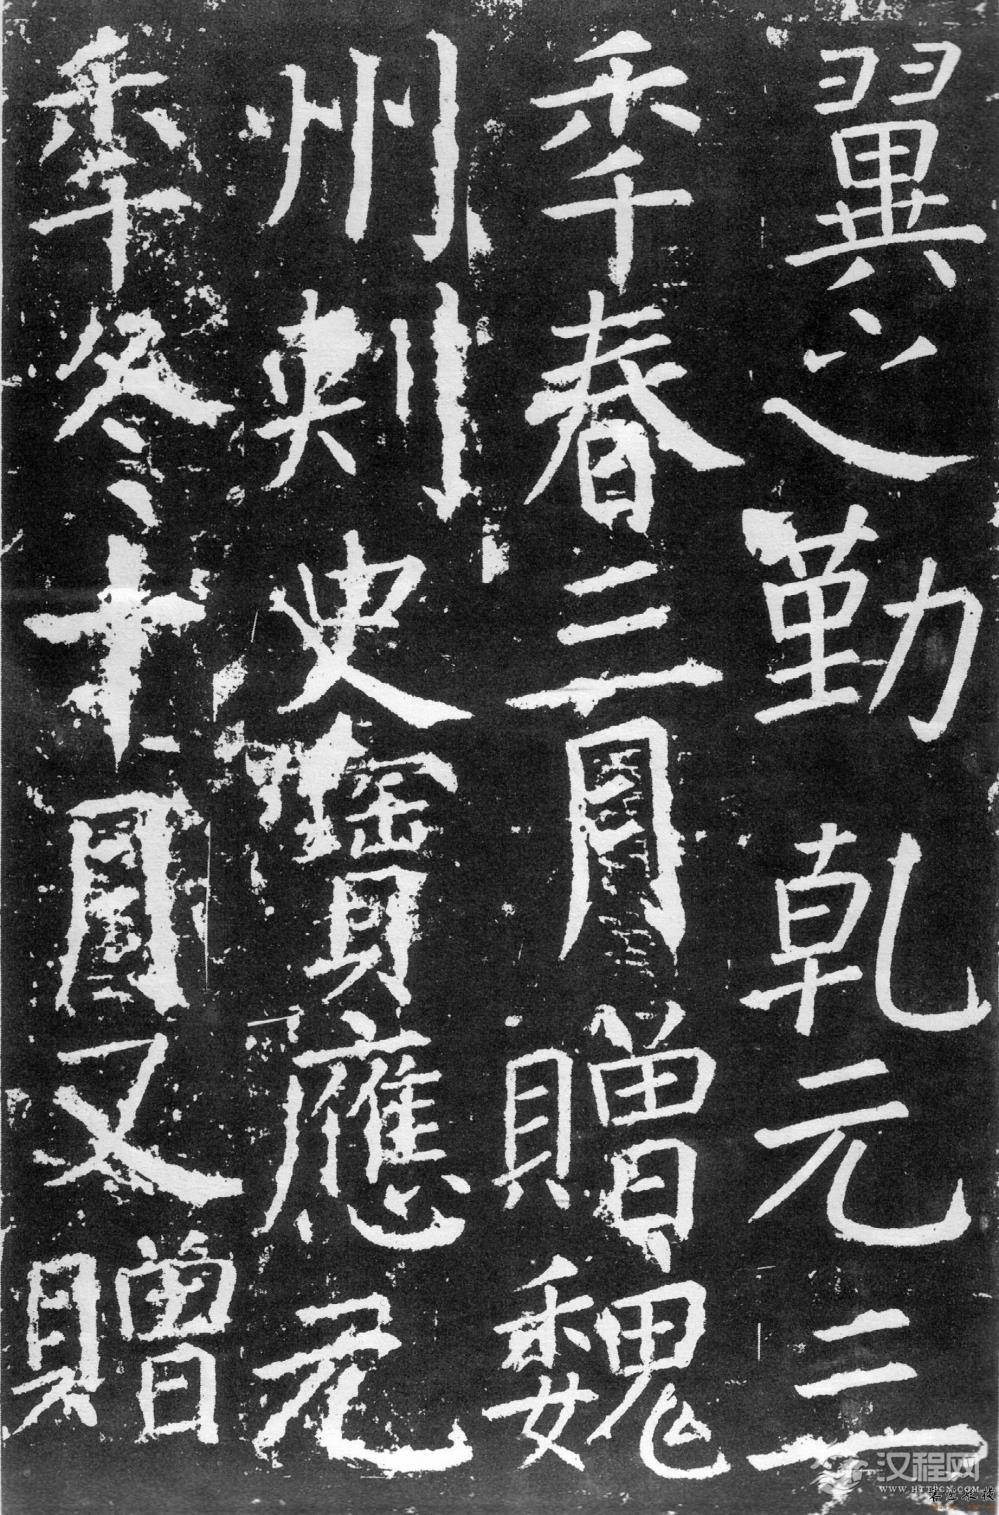 翼之勤乾元三
年春三月贈魏
州刺史寶應元
年冬十月又贈
汉程网
WWW.HTTPCN.COM